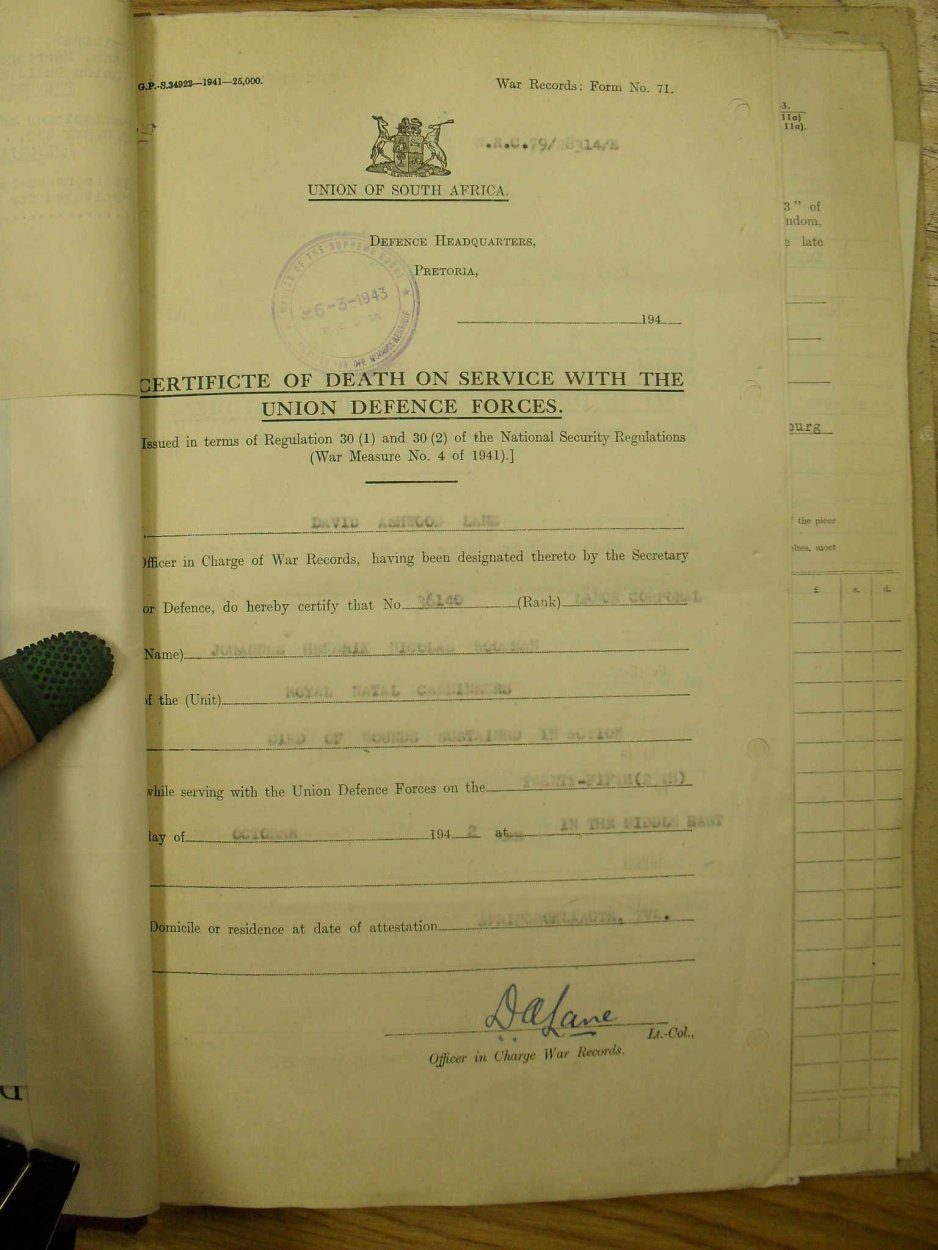 G.P.-S.34922—1941—25,000.
War Records: Form No. 71.
R.C.79/ 8314/
UNION OF SOUTH AFRICA.
DEFENCE HEADQUARTERS,
PRETORIA,
6-3-1943
194
CERTIFICTE OF DEATH ON SERVICE WITH THE
UNION DEFENCE FORCES.
Issued in terms of Regulation 30 (1) and 30 (2) of the National Security Regulations
(War Measure No. 4 of 1941).]
DAVID ASHWOOD LANE
Officer in Charge of War Records, having been designated thereto by the Secretary
or Defence, do hereby certify that No. 36140 (Rank) LANCE CORPORAL
Name) JOHANNES HENDRIK NICOLAS
of the (Unit) ROYAL NATAL CARBINEERS
DIED OF WOUNDS SUSTAINED IN ACTION
while serving with the Union Defence Forces on the TWENTY-FIFTH(25TH)
lay of OCTOBER 194 2 at IN THE MIDDLE EAST
Domicile or residence at date of attestation TVL.
D A Lane
Lt.-Col.,
Officer in Charge War Records.
3.
11a)
11a).
3" of
ndom,
late
burg
the piece
most
£ s. d.